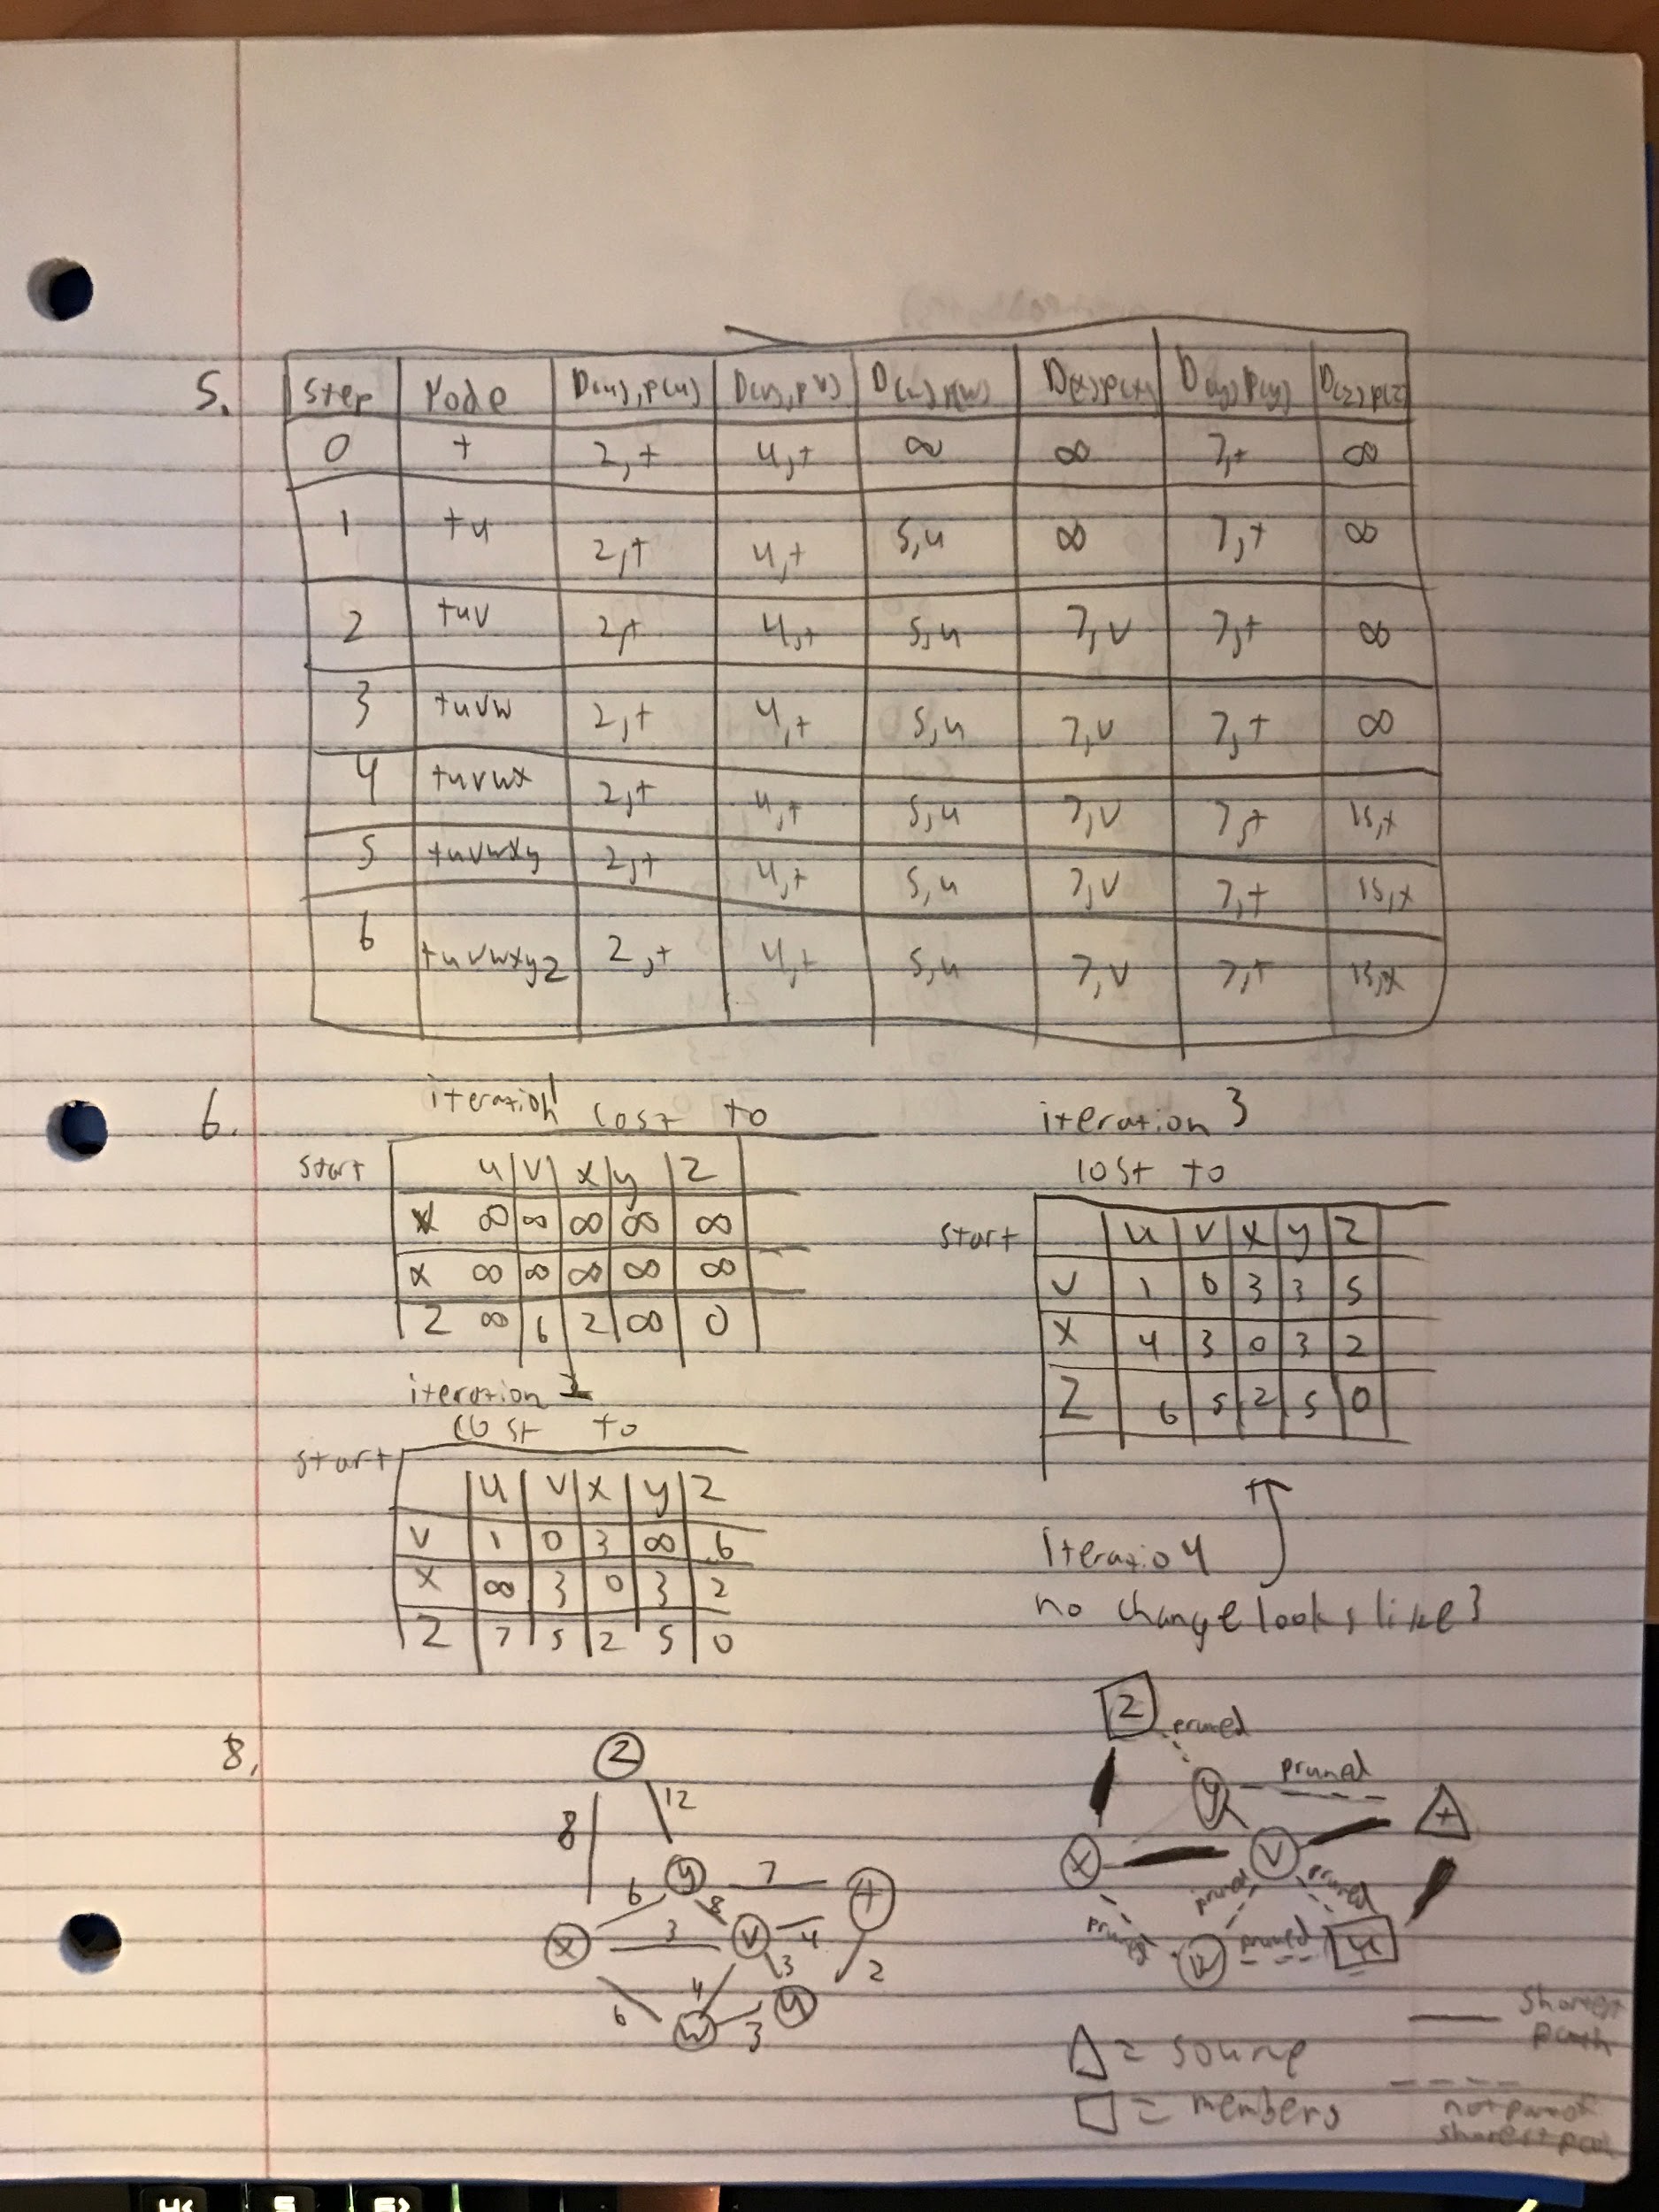 5.
Step Node D(u),p(u) D(v),p(v) D(w),p(w) D(x),p(x) D(y),p(y) D(z),p(z)
0 t 2,t 4,t ∞ ∞ 7,t ∞
1 tu 2,t 4,t 5,u ∞ 7,t ∞
2 tuv 2,t 4,t 5,u 7,v 7,t ∞
3 tuvw 2,t 4,t 5,u 7,v 7,t ∞
4 tuvwx 2,t 4,t 5,u 7,v 7,t 15,x
5 tuvwxy 2,t 4,t 5,u 7,v 7,t 15,x
6 tuvwxyz 2,t 4,t 5,u 7,v 7,t 15,x
6.
iteration 1 cost to
start
u v x y z
v ∞ ∞ ∞ ∞ ∞
x ∞ ∞ ∞ ∞ ∞
z ∞ 6 2 ∞ 0
iteration 2
cost to
start
u v x y z
v 1 0 3 ∞ 6
x ∞ 3 0 3 2
z 7 5 2 5 0
iteration 3
cost to
start
u v x y z
v 1 0 3 3 5
x 4 3 0 3 2
z 6 5 2 5 0
Iteratio 4
no change looks like 3
8.
z
8 12
y 7 t
6 8
x 3 v 4
6 4 3 2
w 3 u
z pruned
y pruned t
x v
pruned pruned pruned
w pruned u
△ = source
□ = members
shortest
path
not part of
shortest path